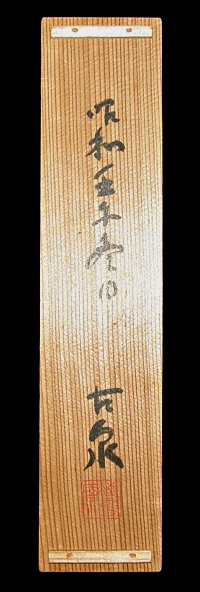 昭和壬子冬日
古泉